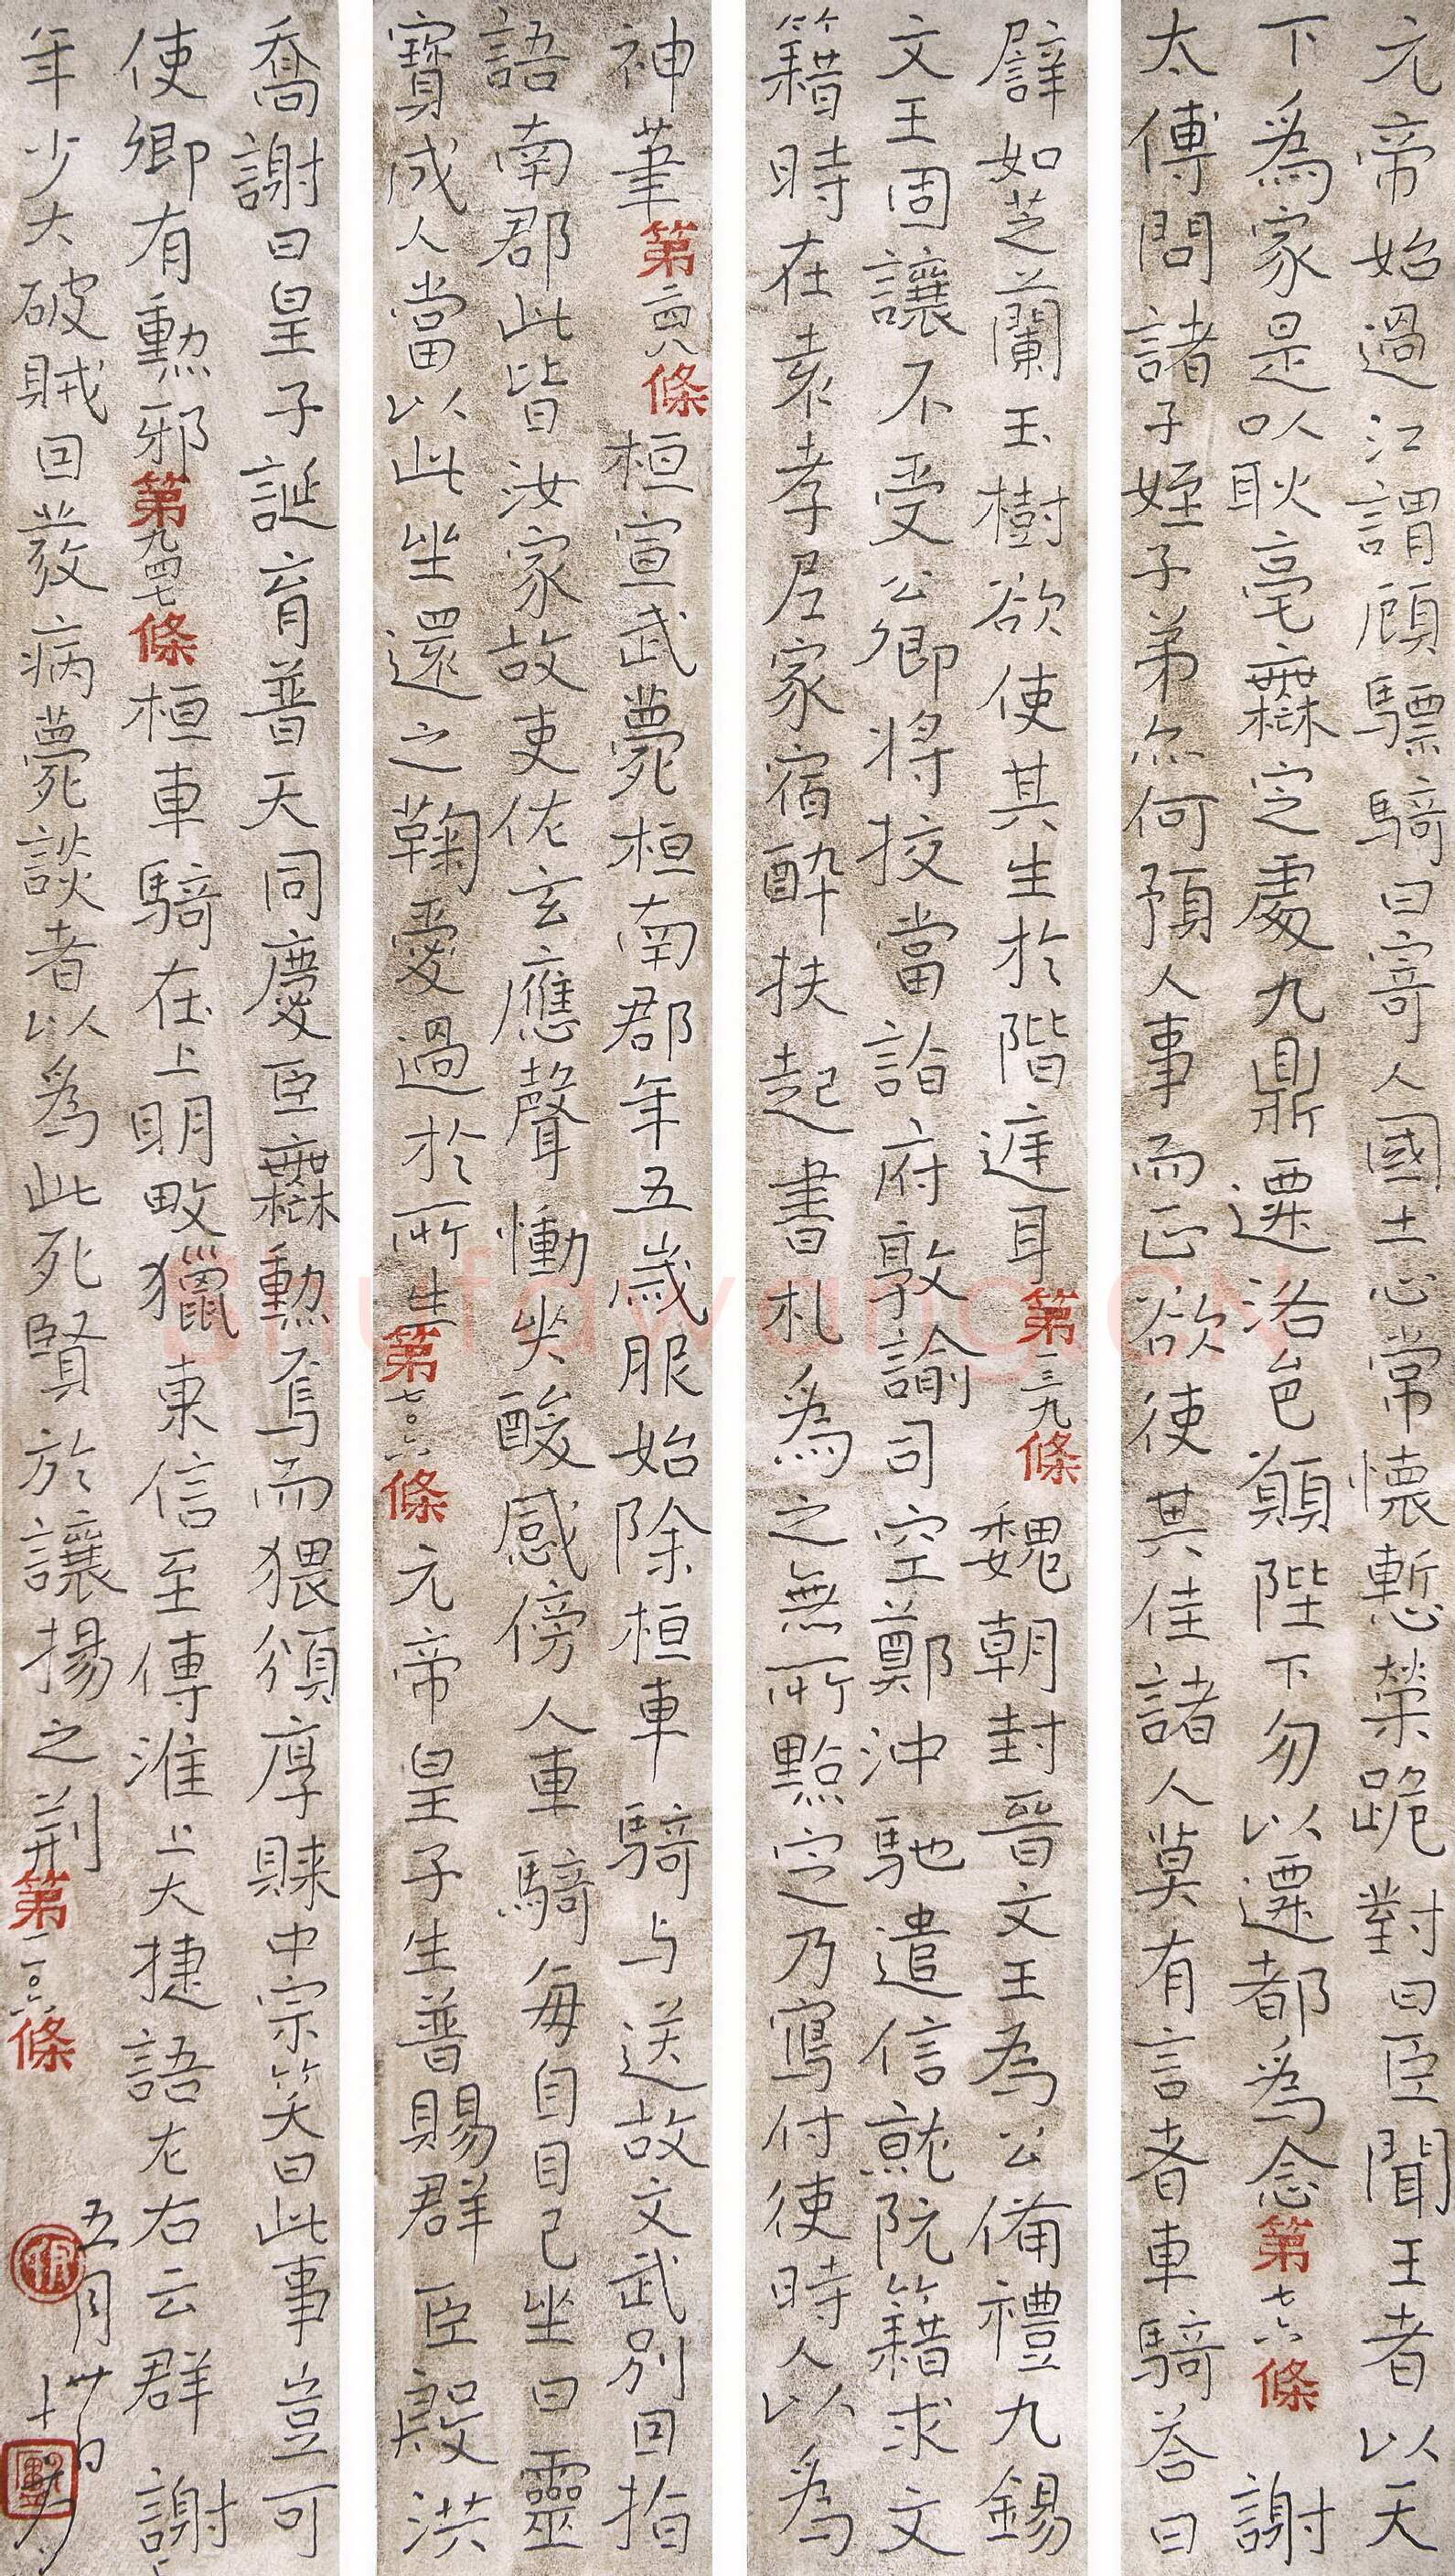 元帝始過江謂顧驃騎曰寄人國土心常懷慙榮跪對曰臣聞王者以天
下為家是以耿亳無定處九鼎遷洛邑願陛下勿以遷都為念第七六條 謝
太傅問諸子姪子弟亦何預人事而正欲使其佳諸人莫有言者車騎荅曰
譬如芝蘭玉樹欲使其生於階庭耳第二三九條 魏朝封晉文王為公備禮九錫
文王固讓不受公卿將校當詣府敦諭司空鄭沖馳遣信就阮籍求文
籍時在袁孝尼家宿醉扶起書札為之無所點定乃寫付使時人以為
神筆第二四八條 桓宣武薨桓南郡年五歲服始除桓車騎与送故文武別因指
語南郡此皆汝家故吏佐玄應聲慟哭酸感傍人車騎每自目己坐曰靈
寶成人當以此坐還之鞠愛過於所生第七〇六條 元帝皇子生普賜群臣殷洪
喬謝曰皇子誕育普天同慶臣無勳焉而猥頒厚賚中宗笑曰此事豈可
使卿有勳邪第九四七條 桓車騎在上明畋獵東信至傳淮上大捷語左右云群謝
年少大破賊因發病薨談者以為此死賢於讓揚之荊第一〇六條
五月廿
Shufawang.CN